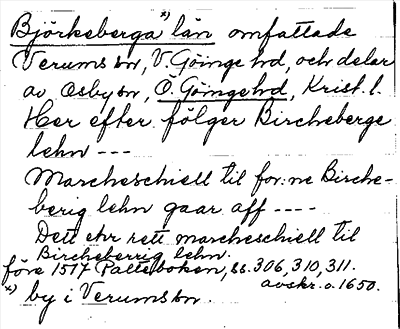 Björkeberga x) län omfattade
Verums sn, V. Göinge hd, och delar
av Osby sn, Ö. Göinge hd, Krist. l.
Her efter fölger Bircheberge
lehn ---
Marcheschiell til for:ne Birche-
berig lehn gaar aff ----
Dett ehr rett marcheschiell til
Bircheberrig lehn.
före 1517 Palteboken, ss. 306, 310, 311.
avskr. o. 1650.
x) by i Verums sn.